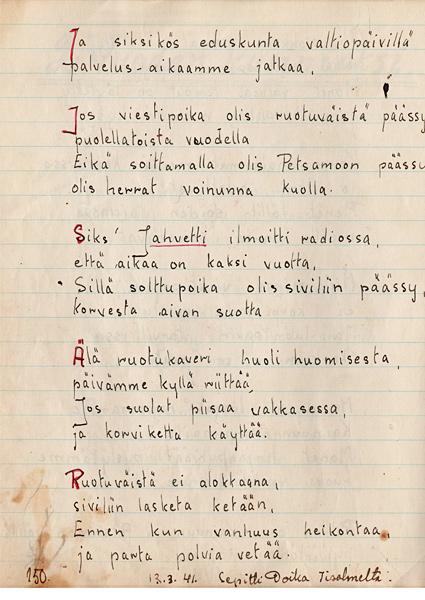 Ja siksikös eduskunta valtiopäivillä
palvelus-aikaamme jatkaa.
Jos viestipoika olis ruotuväistä päässy
puolellatoista vuodella
Eikä soittamalla olis Petsamoon päässy
olis herrat voinunna kuolla.
Siks' Jahvetti ilmoitti radiossa,
että aikaa on kaksi vuotta,
Sillä solttupoika olis siviliin päässy,
korvesta aivan suotta
Älä ruotukaveri huoli huomisesta,
päivämme kyllä riittää,
Jos suolat piisaa vakkasessa,
ja korviketta käyttää.
Ruotuväistä ei alokkaana,
siviliin lasketa ketään,
Ennen kun vanhuus heikontaa,
ja panta polvia vetää.
150. 13.3.41. Sepitti Iisalmelta.